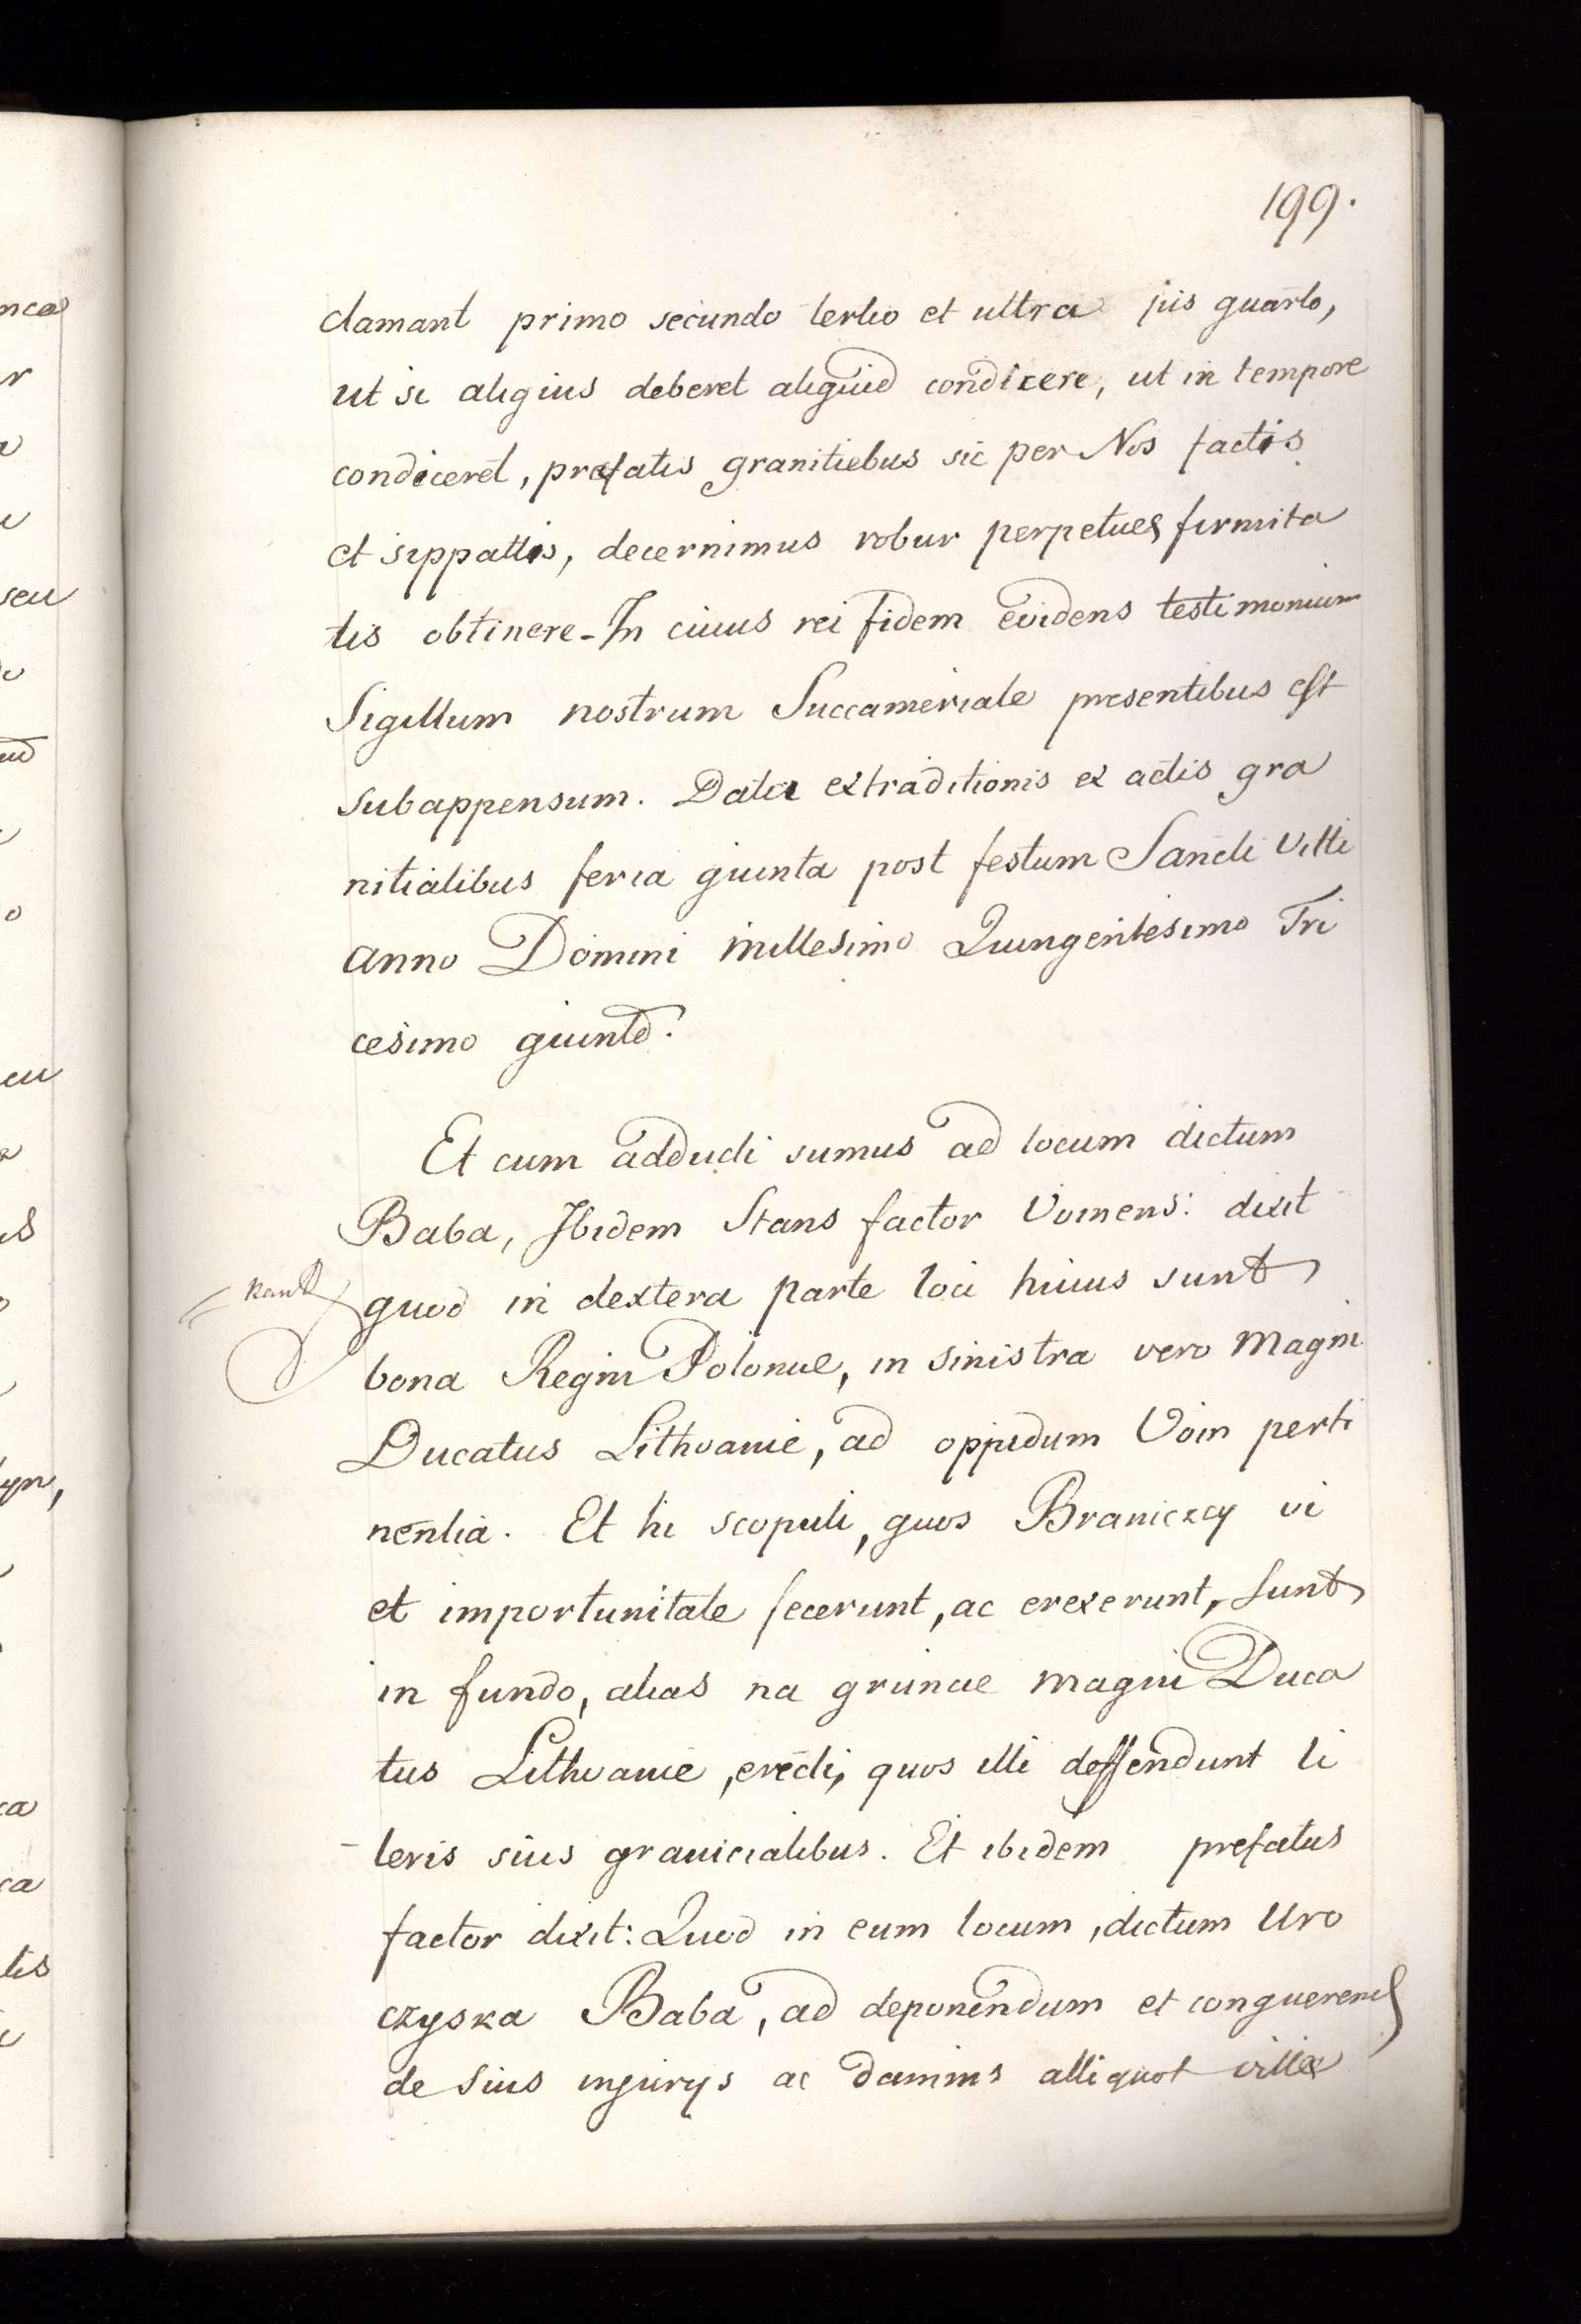 199.
clamant primo secundo tertio et ultra jus quarto,
ut si aliqius deberet aliquid condicere, ut in tempore
condiceret, præfatis granitiebus sic per Nos factis
et sippattis, decernimus robur perpetues firmita
tis obtinere - In cuius rei fidem evidens testimonium
Sigillum nostrum Succameriale presentibus est
subappensum. Data extraditionis ex actis gra
nitialibus feria quinta post festum Sancti Vitti
anno Domini millesimo Quingentesimo Tri
cesimo quinto.
Et cum adducti sumus ad locum dictum
Baba, Ibidem Stans factor Voinens: dixit
quod in dextera parte loci huius sunt
bona Regni Polonie, in sinistra vero Magni
Ducatus Lithvanie, ad oppidum Voin perti
nentia. Et hi scopuli, quos Braniczcy vi
et importunitate fecerunt, ac erexerunt, sunt
in fundo, alias na gruncie magni Duca
tus Lithvanie, erecti, quos illi deffendunt li
- teris suis granicialibus. Et ibidem prefatus
factor dixit: Quod in eum locum, dictum Uro
czyska Baba, ad deponendum et conquerend
de suis injurys ac damnis alliquot villæ